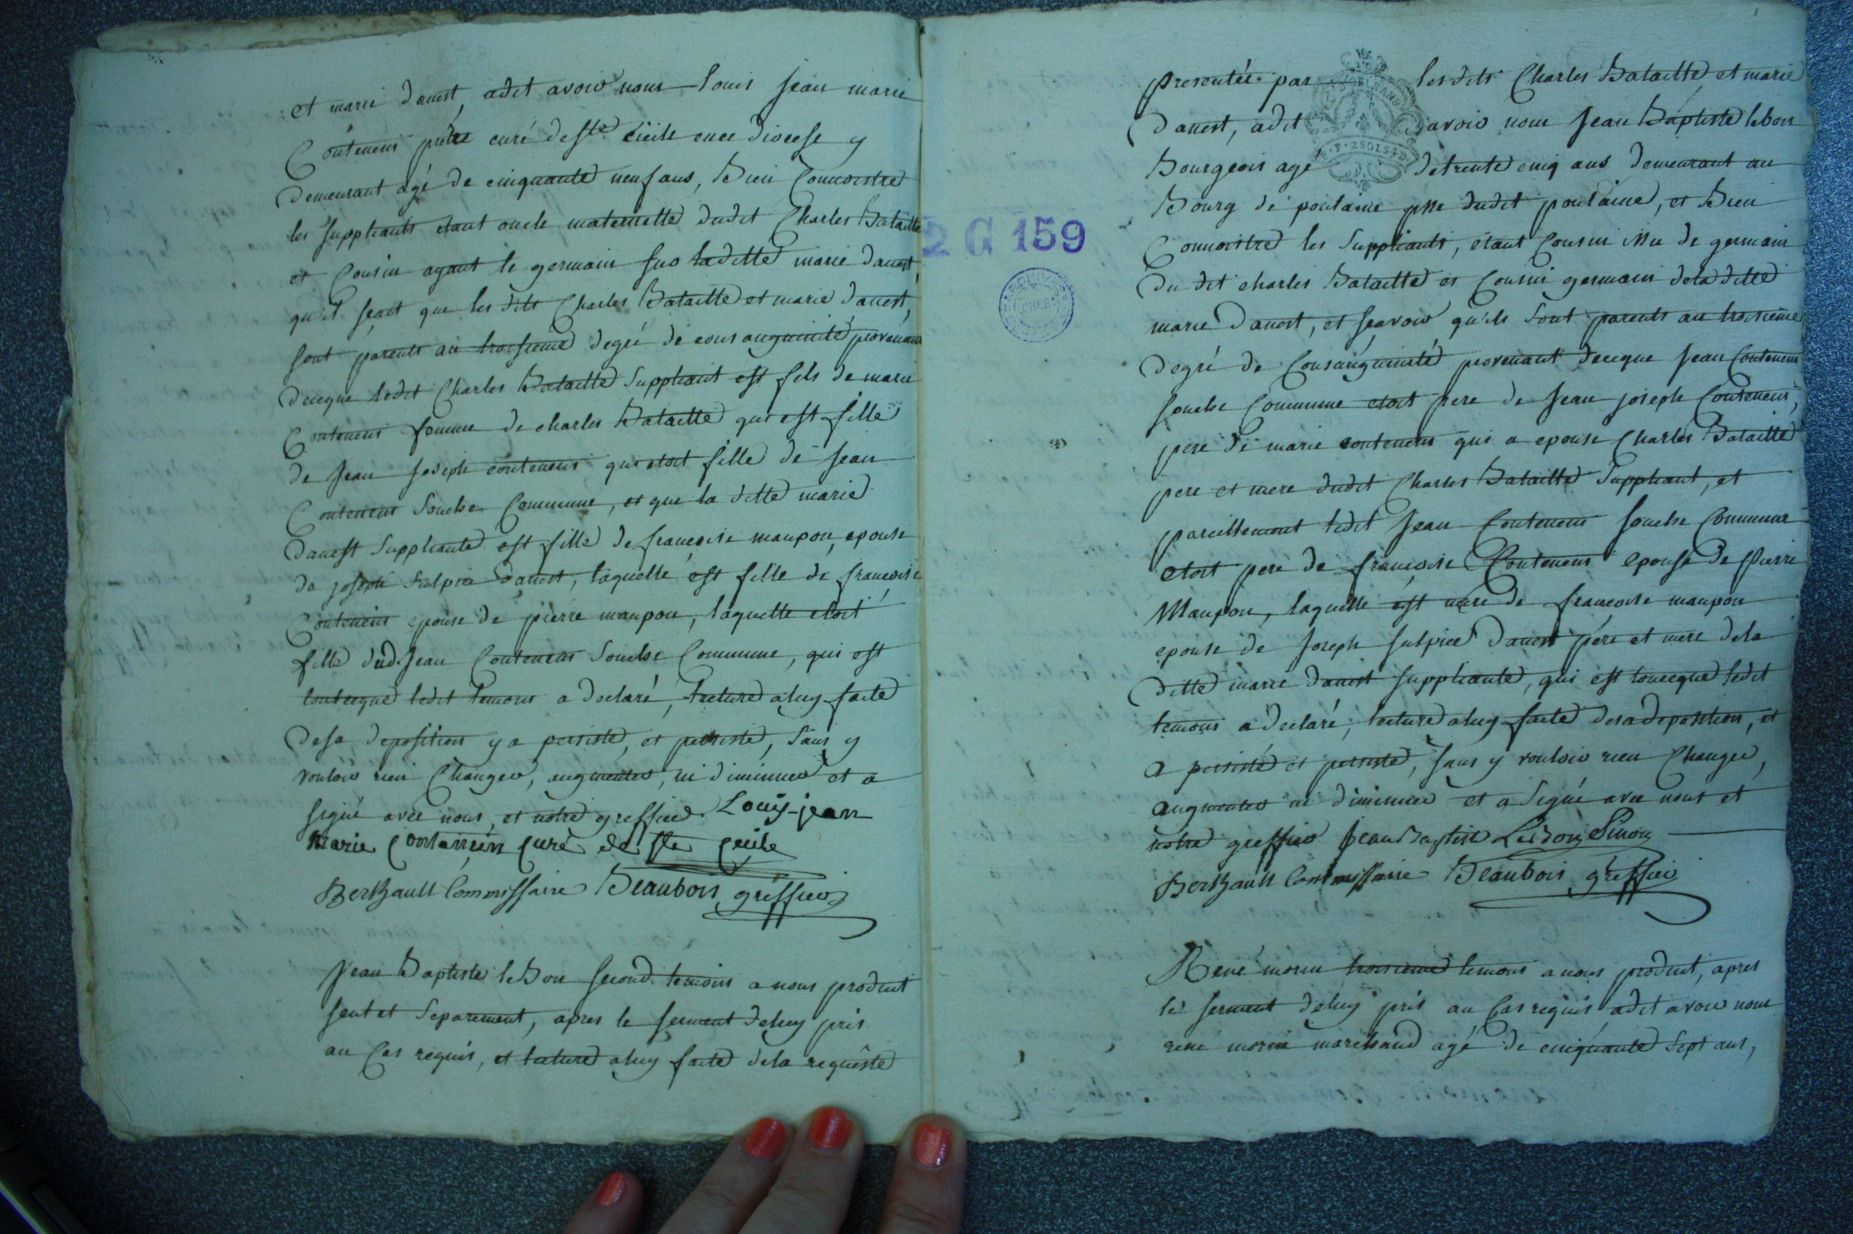 et marie danest, adit avoir nom Louis jean marie
Contenein prêtre curé de Ste Cecile en ce diocese y
demeurant agé de cinquante neuf ans, Bien Connoistre
les suppliants etant oncle maternelle dudit Charles Bataille
et Cousin ayant le germain sur laditte marie danest,
qu'il sçait que les dits Charles Bataille et marie danest,
sont parents au troisieme degré de consanguinité provenant
deceque ledit Charles Bataille Suppliant est fils de marie
Contenein femme de charles Bataille qui est fille
de Jean Joseph contenein qui etoit fille de jean
Contenein Souche Commune, et que la ditte marie
danest Suppliante est fille de francoise maupou, epouse
de joseph Sulpice danest, laquelle est fille de francoise
Contenein epouse de pierre maupou, laquelle etoit
fille dud. Jean Contenein Souche Commune, qui est
toutceque ledit temoins a declaré, lecture aluy faite
desa deposition y a persisté, et persiste, Sans y
vouloir rien Changer, augmenter, ni diminuer et a
signé avec nous, et notre greffier. Louis-jean
marie Contenein curé de Ste Cecile
Berthault Commissaire Beaubois greffier
Jean Baptiste leBon second temoins a nous produit
seul et Separement, apres le serment deluy pris
au Cas requis, et lecture aluy faite dela requête
2 G 159
presentée par les dits Charles Bataille et marie
danest, adit avoir nom Jean Baptiste lebon
Bourgeois agé de trente cinq ans demeurant au
Bourg de poulaine psse dudit poulaine, et Bien
Connoistre les Suppliants, étant Cousin issu de germain
du dit charles Bataille et Cousin germain dela ditte
marie danest, et sçavoir qu'ils Sont parents au troisième
degré de Consanguinité provenant deceque Jean Contenein
souche Commune etoit pere de Jean joseph Contenein,
pere de marie contenein qui a epousé Charles Bataille
pere et mere dudit Charles Bataille Suppliant, et
pareillement ledit Jean Contenein souche Commune
etoit pere de francoise Contenein epouse de Pierre
Maupou, laquelle est mere de francoise maupou
epouse de Joseph Sulpice danest père et mere dela
ditte marie danest suppliante, qui est toutceque ledit
temoins a declaré, lecture aluy faite desa deposition, et
a persisté et persiste, sans y vouloir rien Changer,
augmenter ni diminuer et a Signé avec nous et
notre greffier Jean Baptiste LeBon
Berthault Commissaire Beaubois greffier
René morin troisième temoins a nous produit, apres
le serment deluy pris au Cas requis adit avoir nom
rené morin marchand agé de cinquante Sept ans,